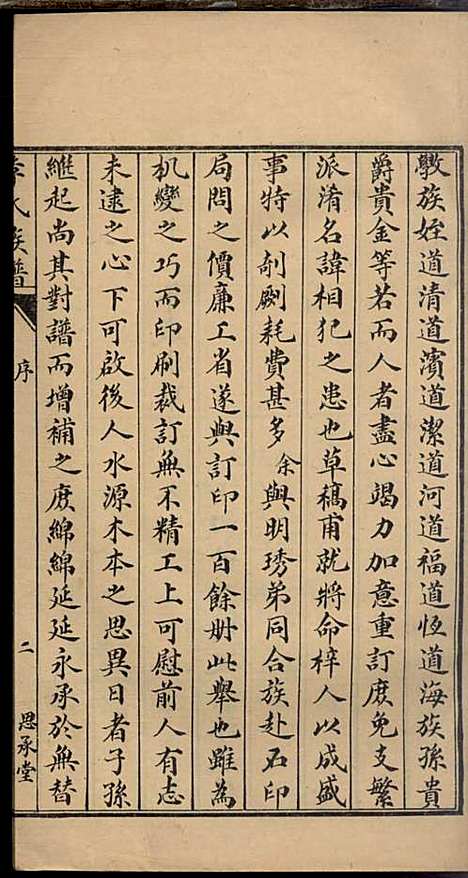 斆族姪道清道濱道潔道河道福道恆道海族孫貴
爵貴金等若而人者盡心竭力加意重訂庶免支繁
派淆名諱相犯之患也草稿甫就將命梓人以成盛
事特以剞劂耗費甚多余與明琇弟同合族赴石印
局問之價廉工省遂與訂印一百餘冊此舉也雖為
机變之巧而印刷裁訂無不精工上可慰前人有志
未逮之心下可啟後人水源木本之思異日者子孫
繼起尚其對譜而增補之庶綿綿延延永承於無替
氏族譜
序
二
思承堂